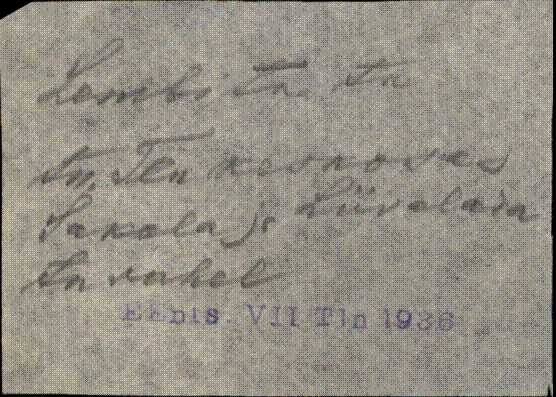 Lembi tn. tn
tn. Ten
Sakala ja Liivalaia
tn vahel
Ehnis. VII Tln 1936